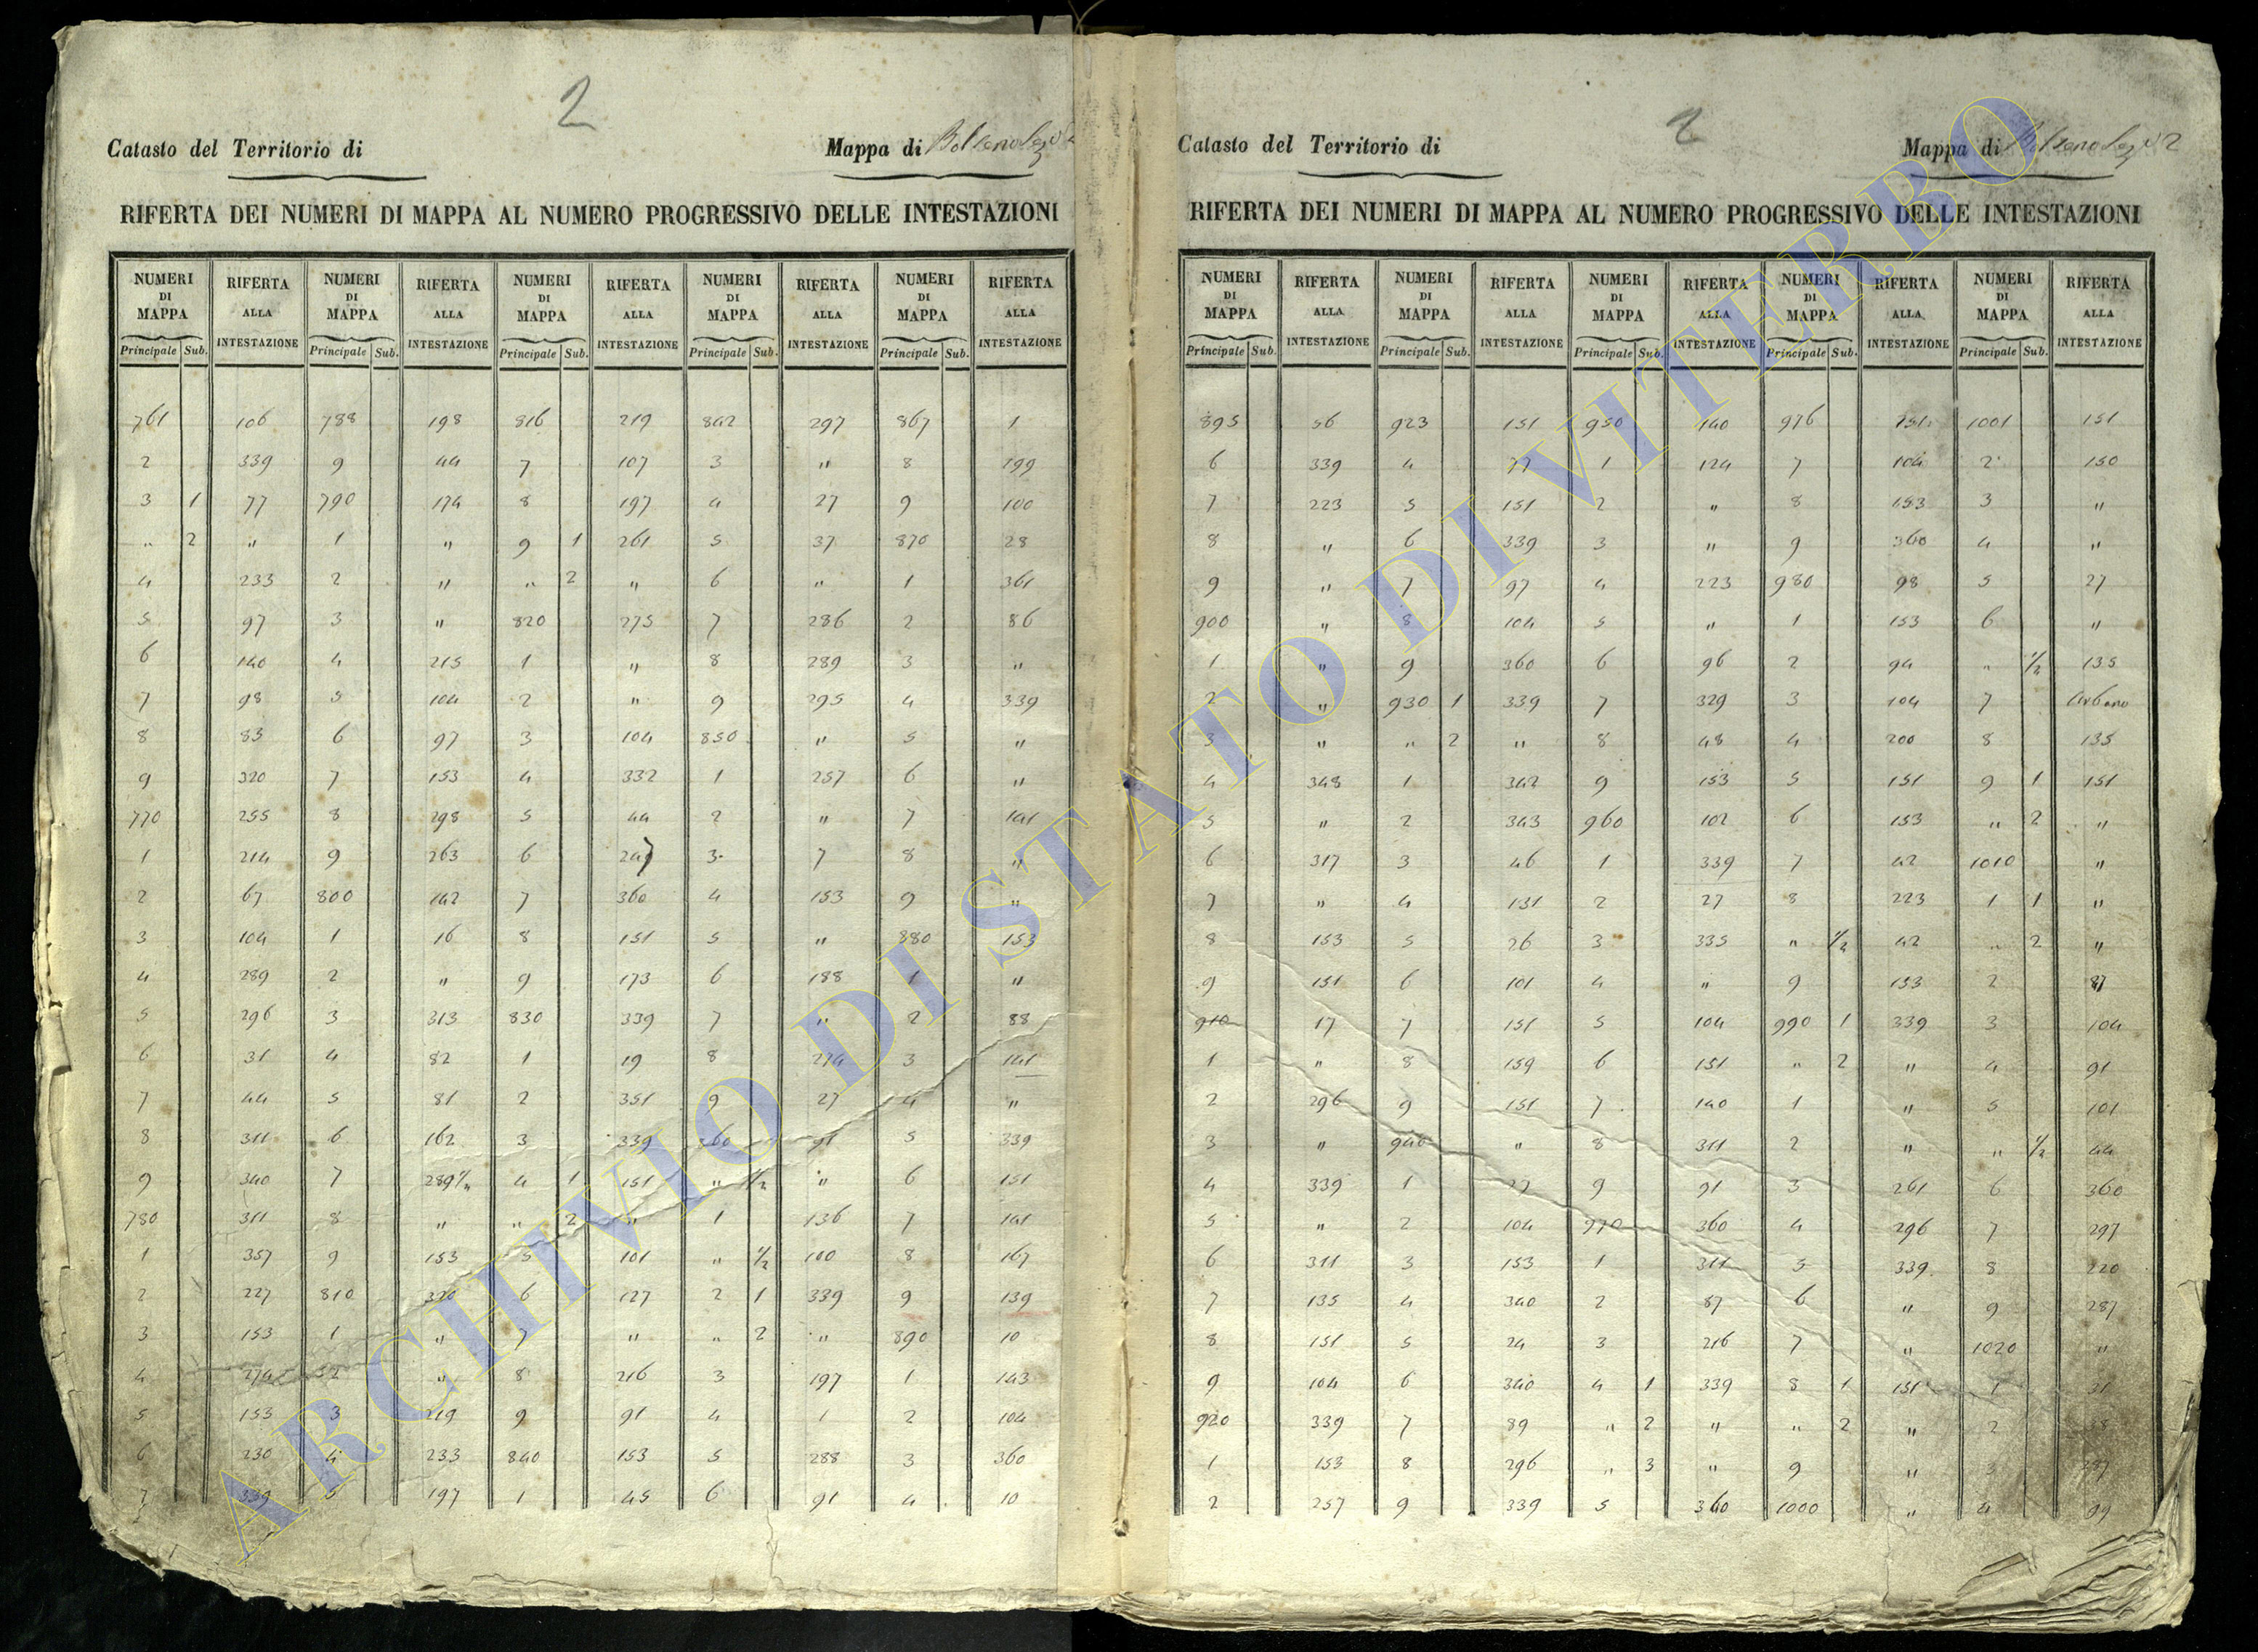 2
Catasto del Territorio di Mappa di
RIFERTA DEI NUMERI DI MAPPA AL NUMERO PROGRESSIVO DELLE INTESTAZIONI
NUMERI RIFERTA NUMERI RIFERTA NUMERI RIFERTA NUMERI RIFERTA NUMERI RIFERTA
DI ALLA DI ALLA DI ALLA DI ALLA DI ALLA
MAPPA INTESTAZIONE MAPPA INTESTAZIONE MAPPA INTESTAZIONE MAPPA INTESTAZIONE MAPPA INTESTAZIONE
Principale Sub. Principale Sub. Principale Sub. Principale Sub. Principale Sub.
761 106 788 198 816 219 842 297 867 1
2 339 9 44 7 107 3 " 8 299
3 1 77 790 174 8 197 4 27 9 100
" 2 " 1 " 9 1 261 5 37 870 28
4 233 2 " " 2 " 6 " 1 361
5 97 3 " 820 275 7 286 2 86
6 140 4 215 1 " 8 289 3 "
7 98 5 104 2 " 9 295 4 339
8 83 6 97 3 104 850 " 5 "
9 320 7 153 4 332 1 257 6 "
770 255 8 298 5 44 2 " 7 141
1 214 9 263 6 247 3 7 8 "
2 67 800 142 7 360 4 153 9 "
3 104 1 16 8 151 5 " 880 153
4 289 2 " 9 173 6 188 1 "
5 296 3 313 830 339 7 " 2 88
6 31 4 82 1 19 8 274 3 141
7 44 5 81 2 351 9 27 4 "
8 311 6 162 3 339 860 91 5 339
9 340 7 289 1/2 4 1 151 " 1/2 " 6 151
780 311 8 " " 2 " 1 136 7 141
1 357 9 153 5 101 " 1/2 100 8 167
2 227 810 320 6 127 2 1 339 9 139
3 153 1 " 7 " " 2 " 890 10
4 274 2 " 8 216 3 197 1 143
5 153 3 219 9 91 4 1 2 104
6 230 4 233 840 153 5 288 3 360
7 339 5 197 1 45 6 91 4 10
2
Catasto del Territorio di Mappa di
RIFERTA DEI NUMERI DI MAPPA AL NUMERO PROGRESSIVO DELLE INTESTAZIONI
NUMERI RIFERTA NUMERI RIFERTA NUMERI RIFERTA NUMERI RIFERTA NUMERI RIFERTA
DI ALLA DI ALLA DI ALLA DI ALLA DI ALLA
MAPPA INTESTAZIONE MAPPA INTESTAZIONE MAPPA INTESTAZIONE MAPPA INTESTAZIONE MAPPA INTESTAZIONE
Principale Sub. Principale Sub. Principale Sub. Principale Sub. Principale Sub.
895 56 923 151 950 140 976 151 1001 151
6 339 4 77 1 124 7 104 2 150
7 223 5 151 2 " 8 153 3 "
8 " 6 339 3 " 9 360 4 "
9 " 7 97 4 223 980 98 5 27
900 " 8 104 5 " 1 153 6 "
1 " 9 360 6 96 2 94 " 1/2 135
2 " 930 1 339 7 329 3 104 7 Urbano
3 " " 2 " 8 48 4 200 8 135
4 348 1 342 9 153 5 151 9 1 151
5 " 2 343 960 102 6 153 " 2 "
6 317 3 46 1 339 7 42 1010 "
7 " 4 131 2 27 8 223 1 1 "
8 153 5 26 3 335 " 1/2 42 " 2 "
9 151 6 101 4 " 9 153 2 87
910 17 7 151 5 104 990 1 339 3 104
1 " 8 159 6 151 " 2 " 4 91
2 296 9 151 7 140 1 " 5 101
3 " 940 " 8 311 2 " " 1/2 44
4 339 1 27 9 91 3 261 6 360
5 " 2 104 970 360 4 296 7 297
6 311 3 153 1 311 5 339 8 220
7 135 4 340 2 87 6 " 9 287
8 151 5 24 3 216 7 " 1020 "
9 104 6 340 4 1 339 8 1 151 1 31
920 339 7 89 " 2 " " 2 " 2
1 153 8 296 " 3 " 9 " 3 287
2 257 9 339 5 340 1000 " 4 99
ARCHIVIO DI STATO DI VITERBO